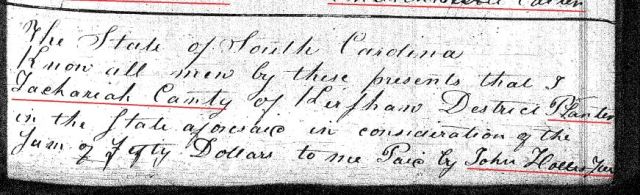 The State of South Carolina
Know all men by these presents that I
Zachariah Canty of Kershaw District Planter
in the State aforesaid in consideration of the
Sum of Dollars to me Paid by John Hollis